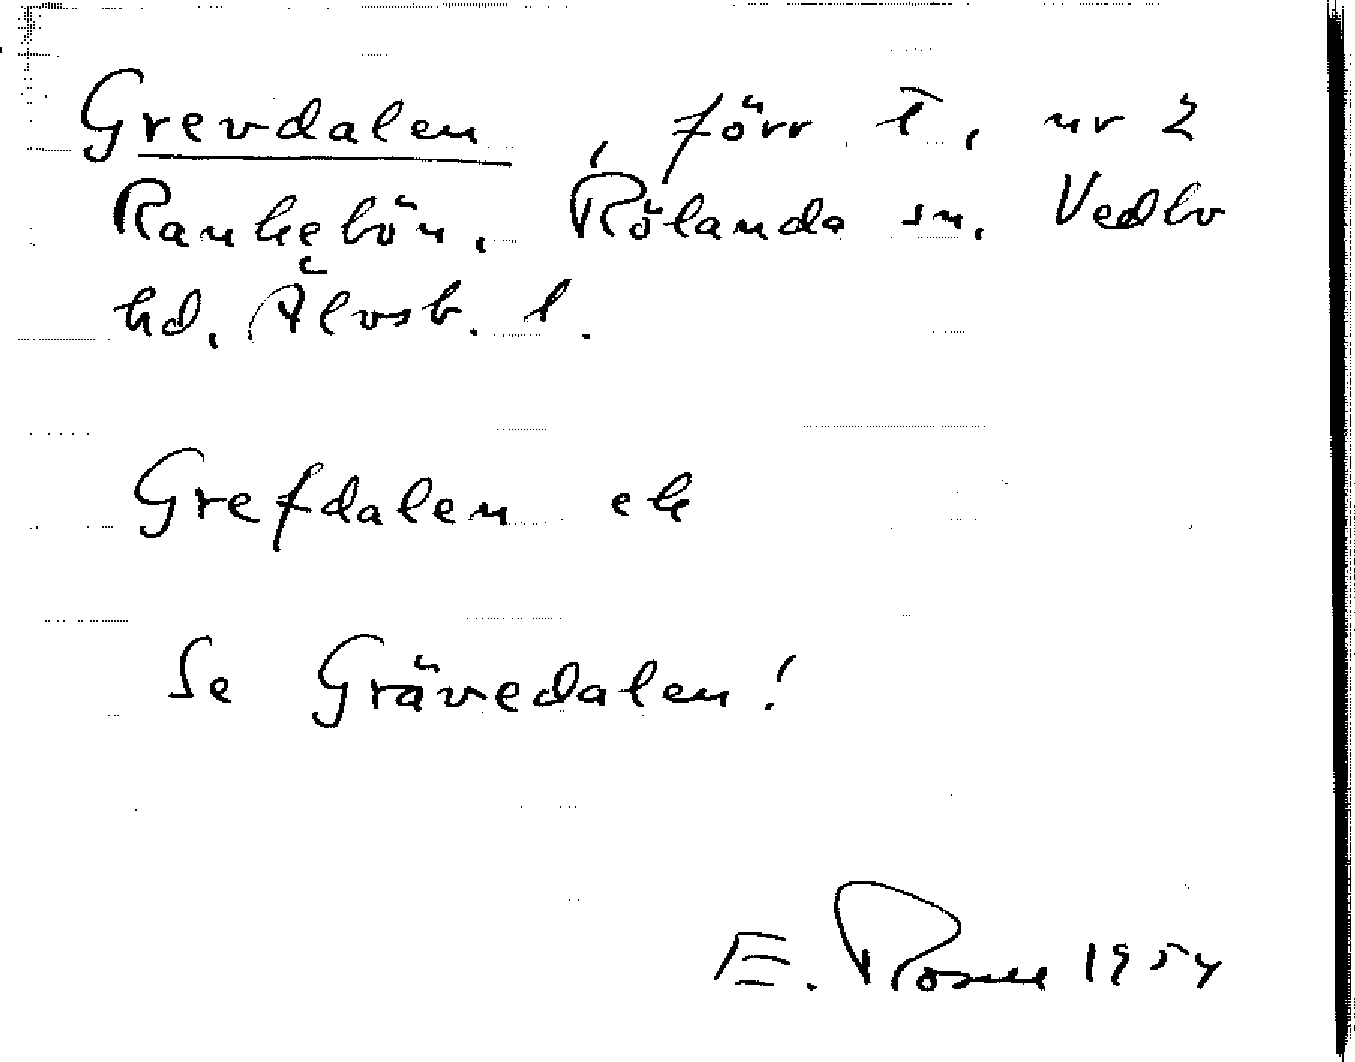 Grevdalen, förr t, ur 2
Rankebön, Rölanda sn, Vedbo
hd, Älvsb. l.
Grefdalen ek
Se Grävedalen!
E. Rosell 1954